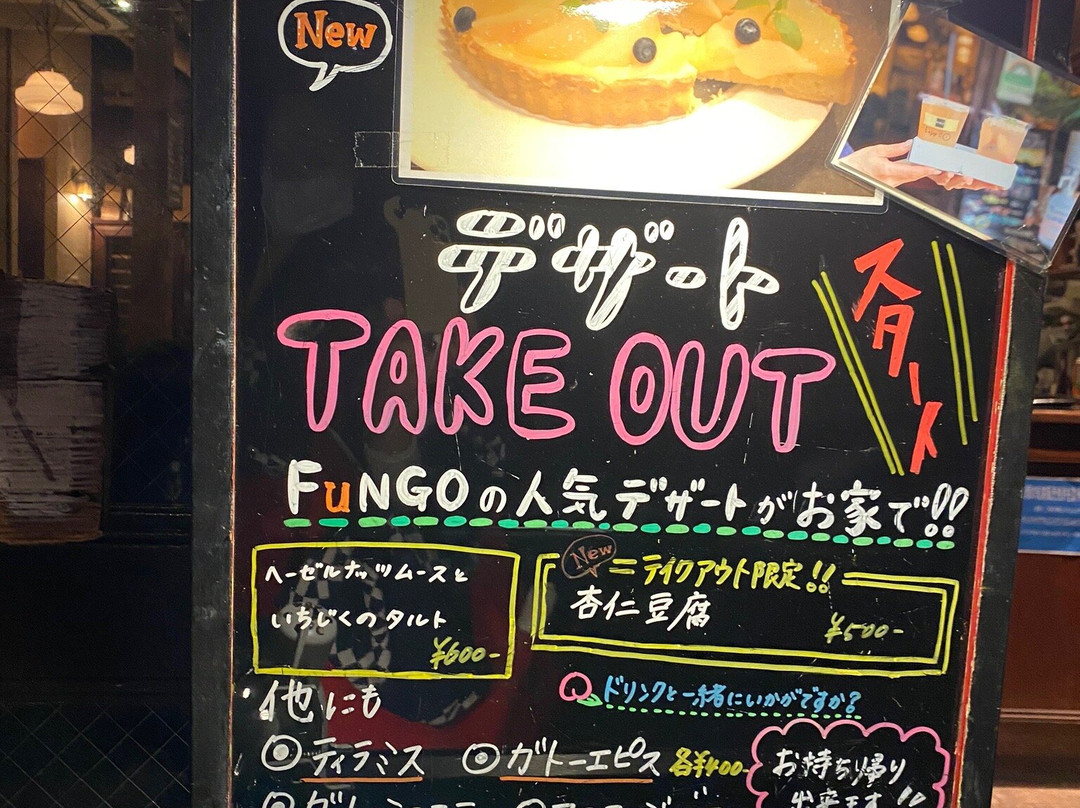 New
デザート
TAKE OUT
スタート
FuNGOの人気デザートがお家で!!
ヘーゼルナッツムースと
いちじくのタルト
¥600-
New
=テイクアウト限定!!=
杏仁豆腐
¥500-
ドリンクと一緒にいかがですか?
・他にも
◎ティラミス ◎ガトーエピス 各¥400-
お持ち帰り
出来ます!!